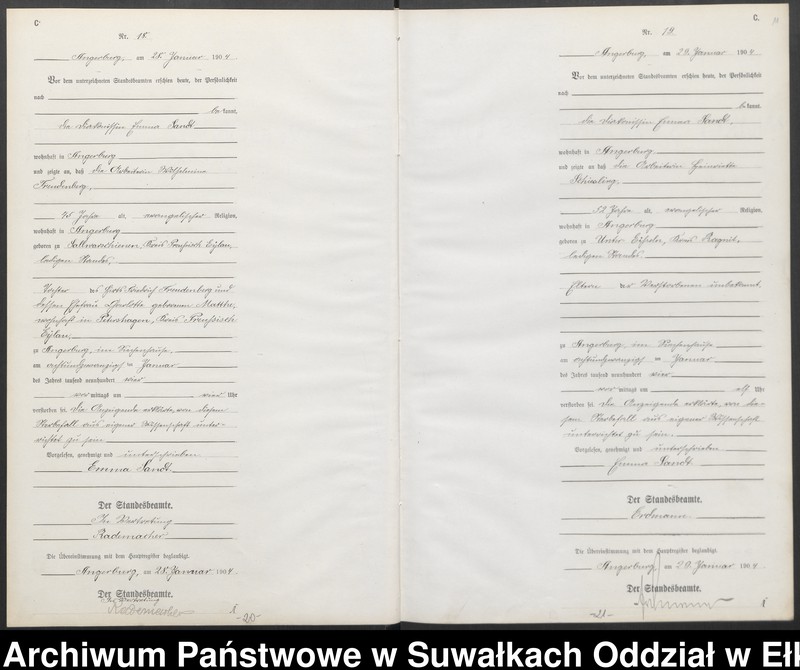 C
Nr. 18.
Angerburg, am 28. Januar 1904
Vor dem unterzeichneten Standesbeamten erschien heute, der Persönlichkeit
nach
bekannt,
die Diakonissin Emma Sandt
wohnhaft in Angerburg
und zeigte an, daß die Arbeiterin Wilhelmine
Freudenberg,
45 Jahre alt, evangelischer Religion,
wohnhaft in Angerburg
geboren zu Kreis Preußisch Eylau,
ledigen Standes,
Tochter des Friedrich Freudenberg und
dessen Ehefrau Charlotte geborenen
wohnhaft in Petershagen, Kreis Preußisch
Eylau,
zu Angerburg, im Siechenhause
am achtundzwanzigsten Januar
des Jahres tausend neunhundert vier
vor mittags um vier Uhr
verstorben sei. Die Anzeigende erklärte, von diesem
Sterbefall aus eigener Wissenschaft unter-
richtet zu sein.
Vorgelesen, genehmigt und unterschrieben
Emma Sandt.
Der Standesbeamte.
In Vertretung
Rademacher
Die Übereinstimmung mit dem Hauptregister beglaubigt.
Angerburg, am 28. Januar 1904
Der Standesbeamte.
In Vertretung
Rademacher
-20-
C.
Nr. 19.
Angerburg, am 29. Januar 1904
Vor dem unterzeichneten Standesbeamten erschien heute, der Persönlichkeit
nach
bekannt,
die Diakonissin Emma Sandt,
wohnhaft in Angerburg
und zeigte an, daß die Arbeiterin Heinriette
52 Jahre alt, evangelischer Religion,
wohnhaft in Angerburg
geboren zu Unter Eißeln, Kreis Ragnit,
ledigen Standes,
Eltern der Verstorbenen unbekannt,
zu Angerburg, im Siechenhause
am achtundzwanzigsten Januar
des Jahres tausend neunhundert vier
vor mittags um elf Uhr
verstorben sei. Die Anzeigende erklärte, von die-
sem Sterbefall aus eigener Wissenschaft
unterrichtet zu sein.
Vorgelesen, genehmigt und unterschrieben
Emma Sandt
Der Standesbeamte.
Erdmann
Die Übereinstimmung mit dem Hauptregister beglaubigt.
Angerburg, am 29. Januar 1904
Der Standesbeamte.
Erdmann
-21-
Archiwum Państwowe w Suwałkach Oddział w Eł